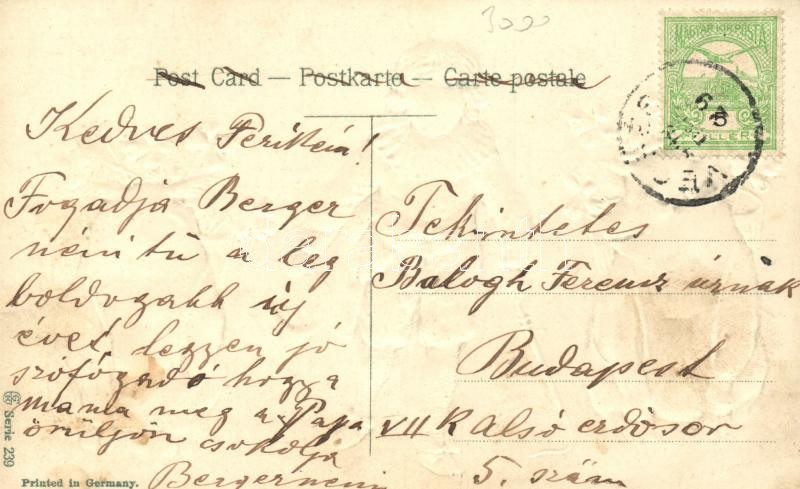 3000
MAGYAR KIR. POSTA
Post Card — Postkarte — Carte postale
Kedves Ferikém!
Fogadja Berger
nénitü a leg
boldogabb új
évet, legyen jó
szófogadó hogy a
mama meg a Papa
örüljön csokolja
Bergerneni
Tekintetes
Balogh Ferencz úrnak
Budapest
VII K alsó erdősor
5. szám
Serie 239
Printed in Germany.